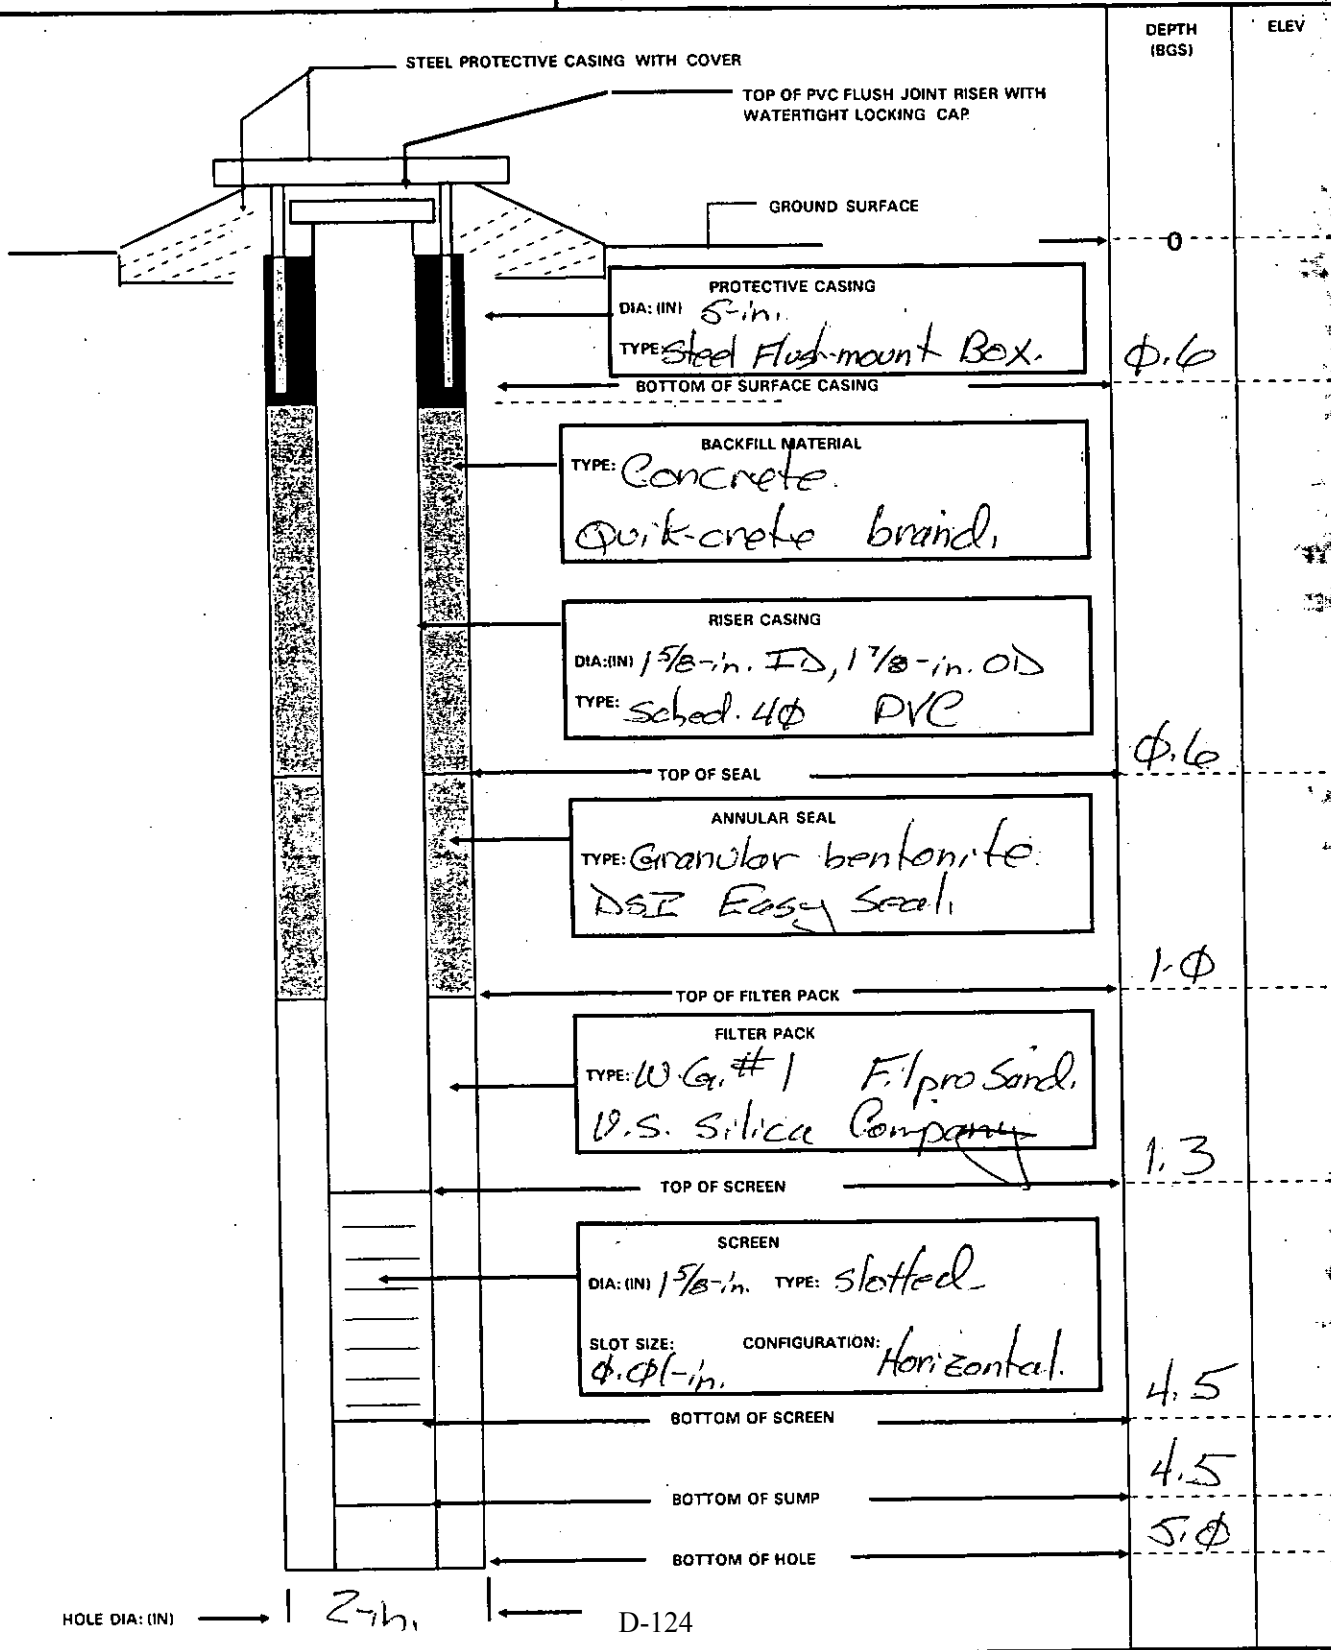 DEPTH (BGS)
ELEV
STEEL PROTECTIVE CASING WITH COVER
TOP OF PVC FLUSH JOINT RISER WITH
WATERTIGHT LOCKING CAP
GROUND SURFACE
0
PROTECTIVE CASING
DIA: (IN) 5-in.
TYPE: Steel Flush-mount Box.
0.6
BOTTOM OF SURFACE CASING
BACKFILL MATERIAL
TYPE: Concrete.
Quik-crete brand.
RISER CASING
DIA:(IN) 1 5/8-in. ID, 1 7/8-in. OD
TYPE: Sched. 40 PVC
0.6
TOP OF SEAL
ANNULAR SEAL
TYPE: Granular bentonite.
DSI Easy Seal.
1.0
TOP OF FILTER PACK
FILTER PACK
TYPE: W.G. #1 Filpro Sand.
U.S. Silica Company
1.3
TOP OF SCREEN
SCREEN
DIA: (IN) 1 5/8-in. TYPE: Slotted
SLOT SIZE: CONFIGURATION:
0.01-in. Horizontal.
4.5
BOTTOM OF SCREEN
4.5
BOTTOM OF SUMP
5.0
BOTTOM OF HOLE
HOLE DIA: (IN) 2-in.
D-124